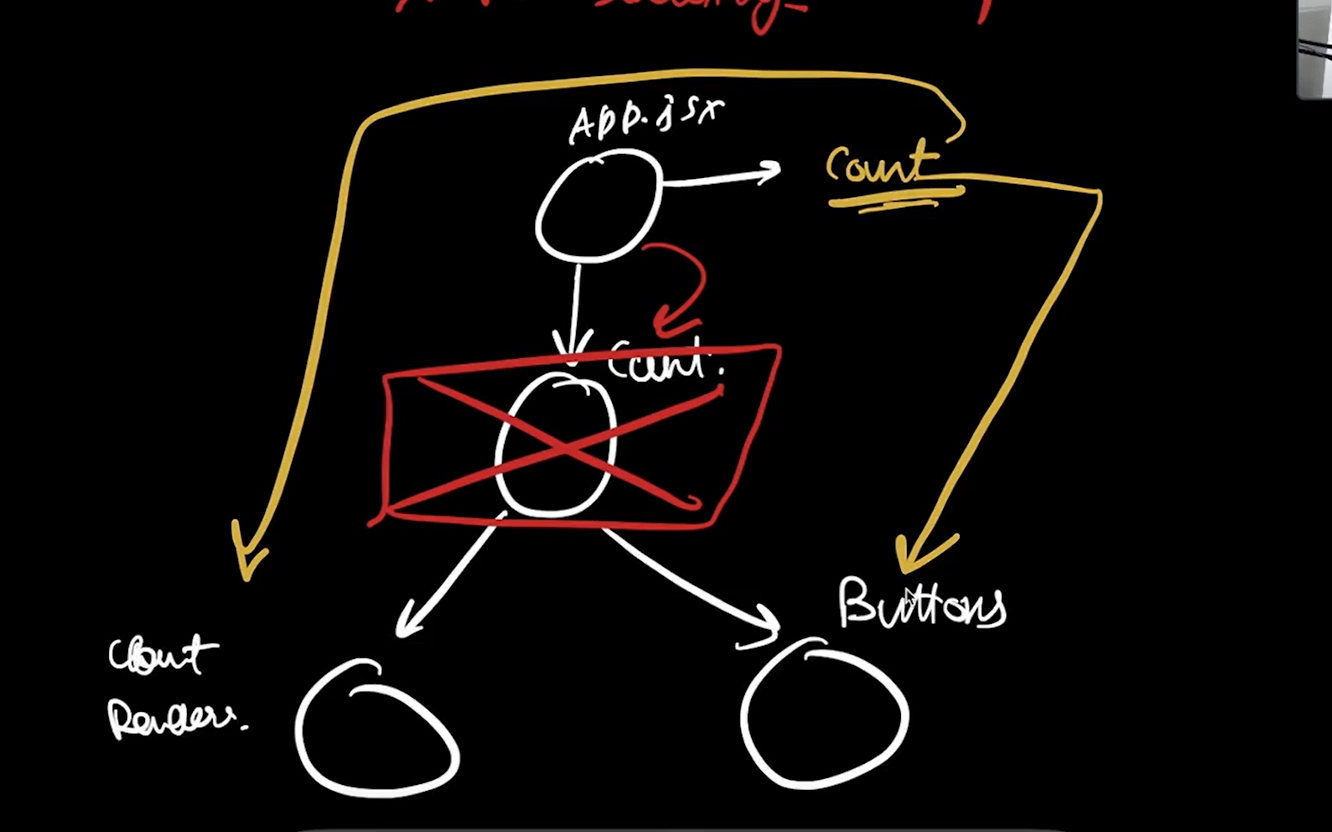 App.jsx
Count
Count.
Buttons
Count
Renders.